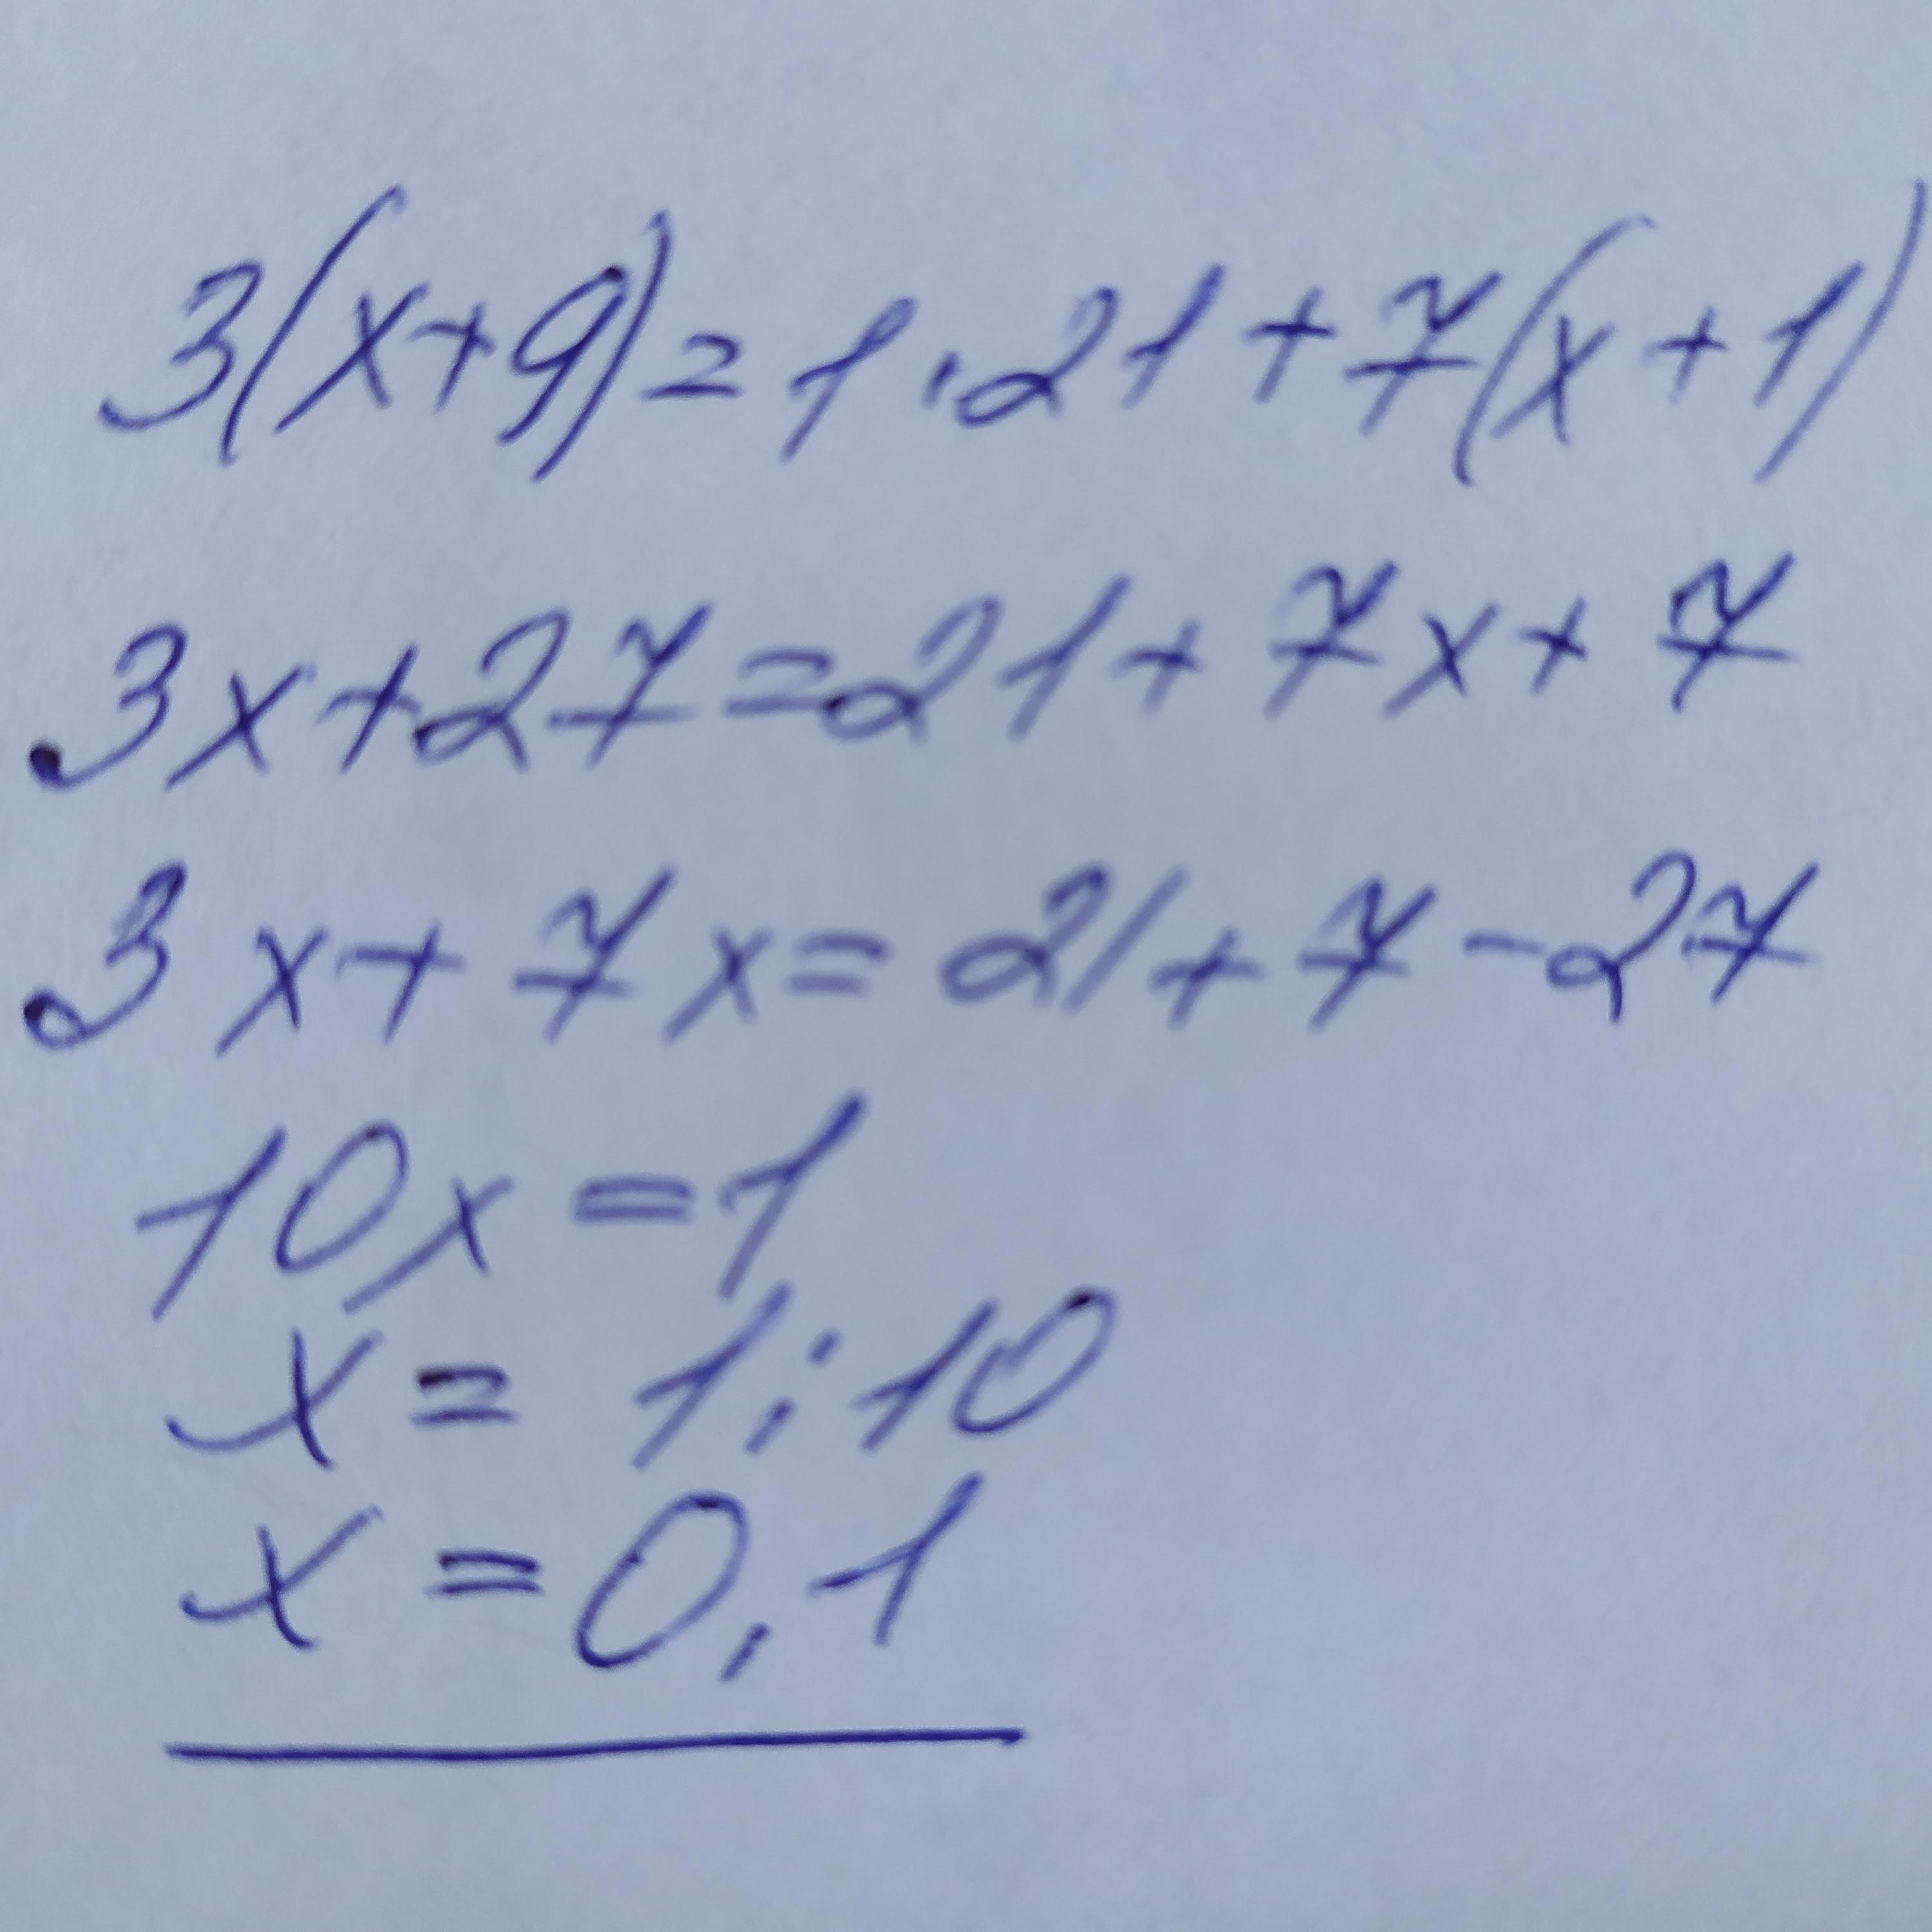 3(x+9)=1·21+7(x+1)
3x+27=21+7x+7
3x+7x=21+7-27
10x=1
x=1:10
x=0,1